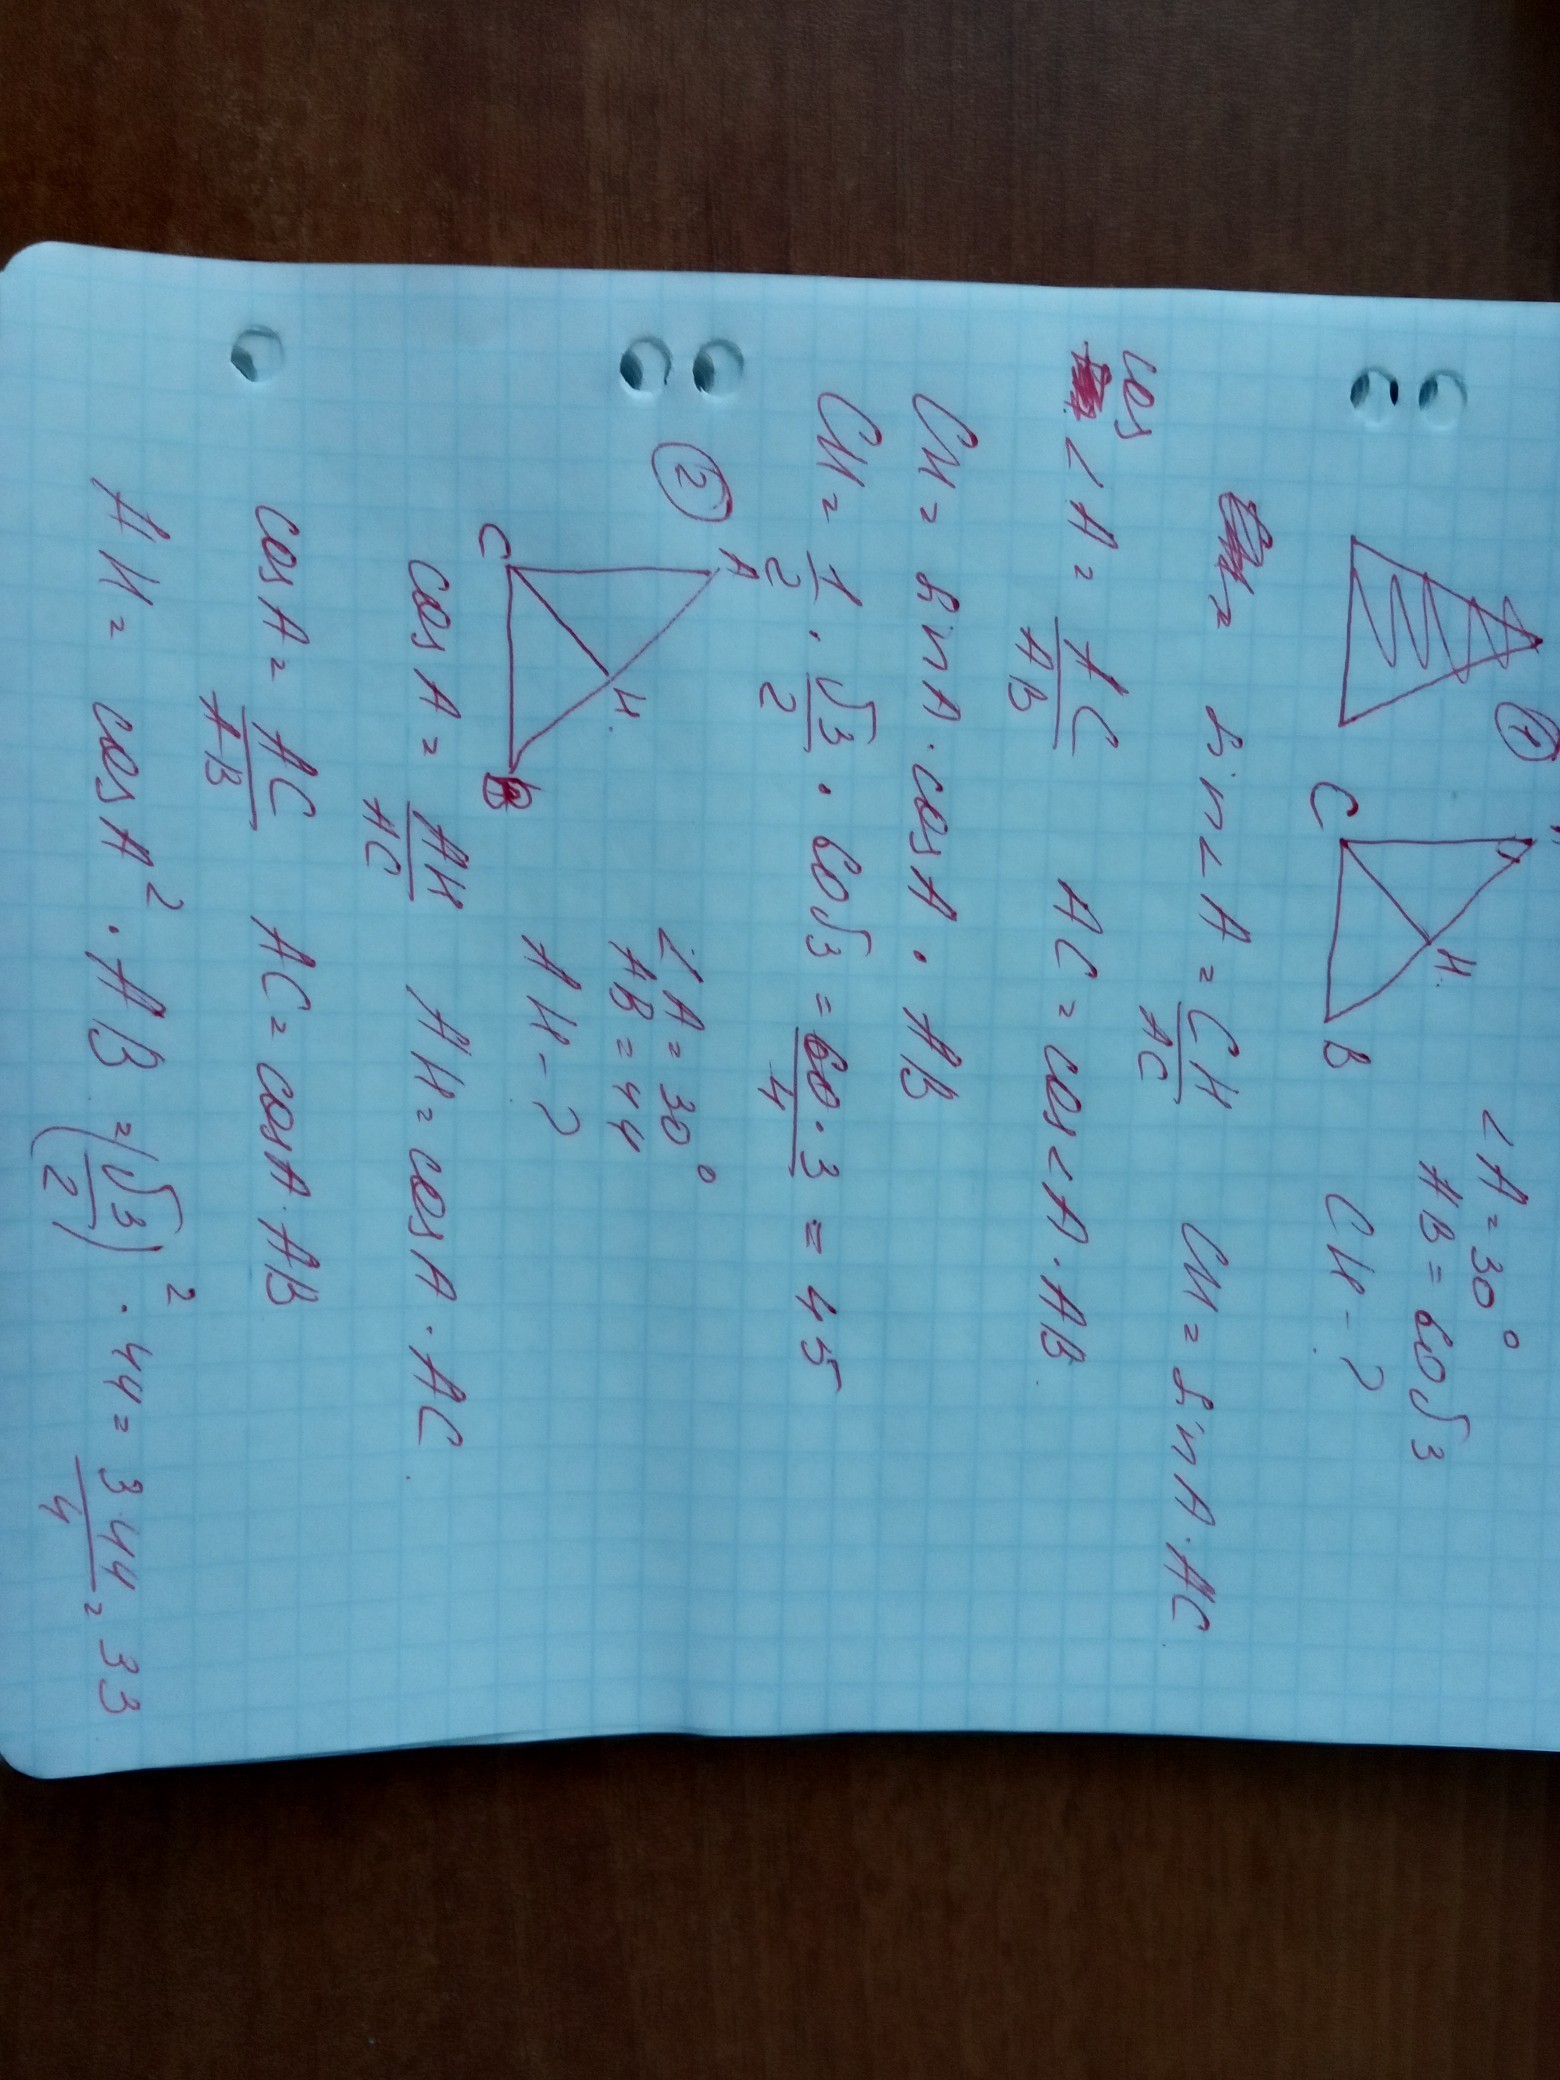 1
A
C
H
B
∠A = 30°
AB = 60√3
CH - ?
sin∠A = CH/AC CH = sinA · AC
cos∠A = AC/AB AC = cos∠A · AB
CH = sinA · cosA · AB
CH = 1/2 · √3/2 · 60√3 = 60·3/4 = 45
2
A
C
H
B
∠A = 30°
AB = 44
AH - ?
cosA = AH/AC AH = cosA · AC
cosA = AC/AB AC = cosA · AB
AH = cosA² · AB = (√3/2)² · 44 = 3·44/4 = 33